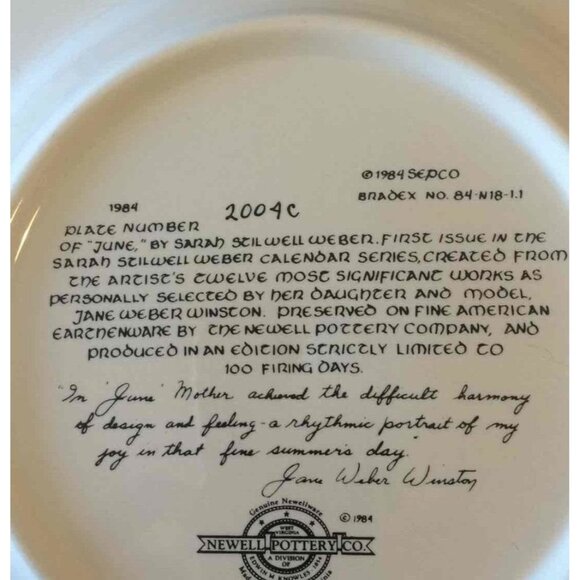 © 1984 SEPCO
BRADEX NO. 84-N18-1.1
1984
2004C
PLATE NUMBER
OF "JUNE," BY SARAH STILWELL WEBER. FIRST ISSUE IN THE
SARAH STILWELL WEBER CALENDAR SERIES, CREATED FROM
THE ARTIST'S TWELVE MOST SIGNIFICANT WORKS AS
PERSONALLY SELECTED BY HER DAUGHTER AND MODEL,
JANE WEBER WINSTON. PRESERVED ON FINE AMERICAN
EARTHENWARE BY THE NEWELL POTTERY COMPANY, AND
PRODUCED IN AN EDITION STRICTLY LIMITED TO
100 FIRING DAYS.
"In 'June' Mother achieved the difficult harmony
of design and feeling - a rhythmic portrait of my
joy in that fine summer's day."
Jane Weber Winston
Genuine Newellware
© 1984
WEST
VIRGINIA
NEWELL POTTERY CO.
A DIVISION
OF
EDWIN M. KNOWLES, 1854